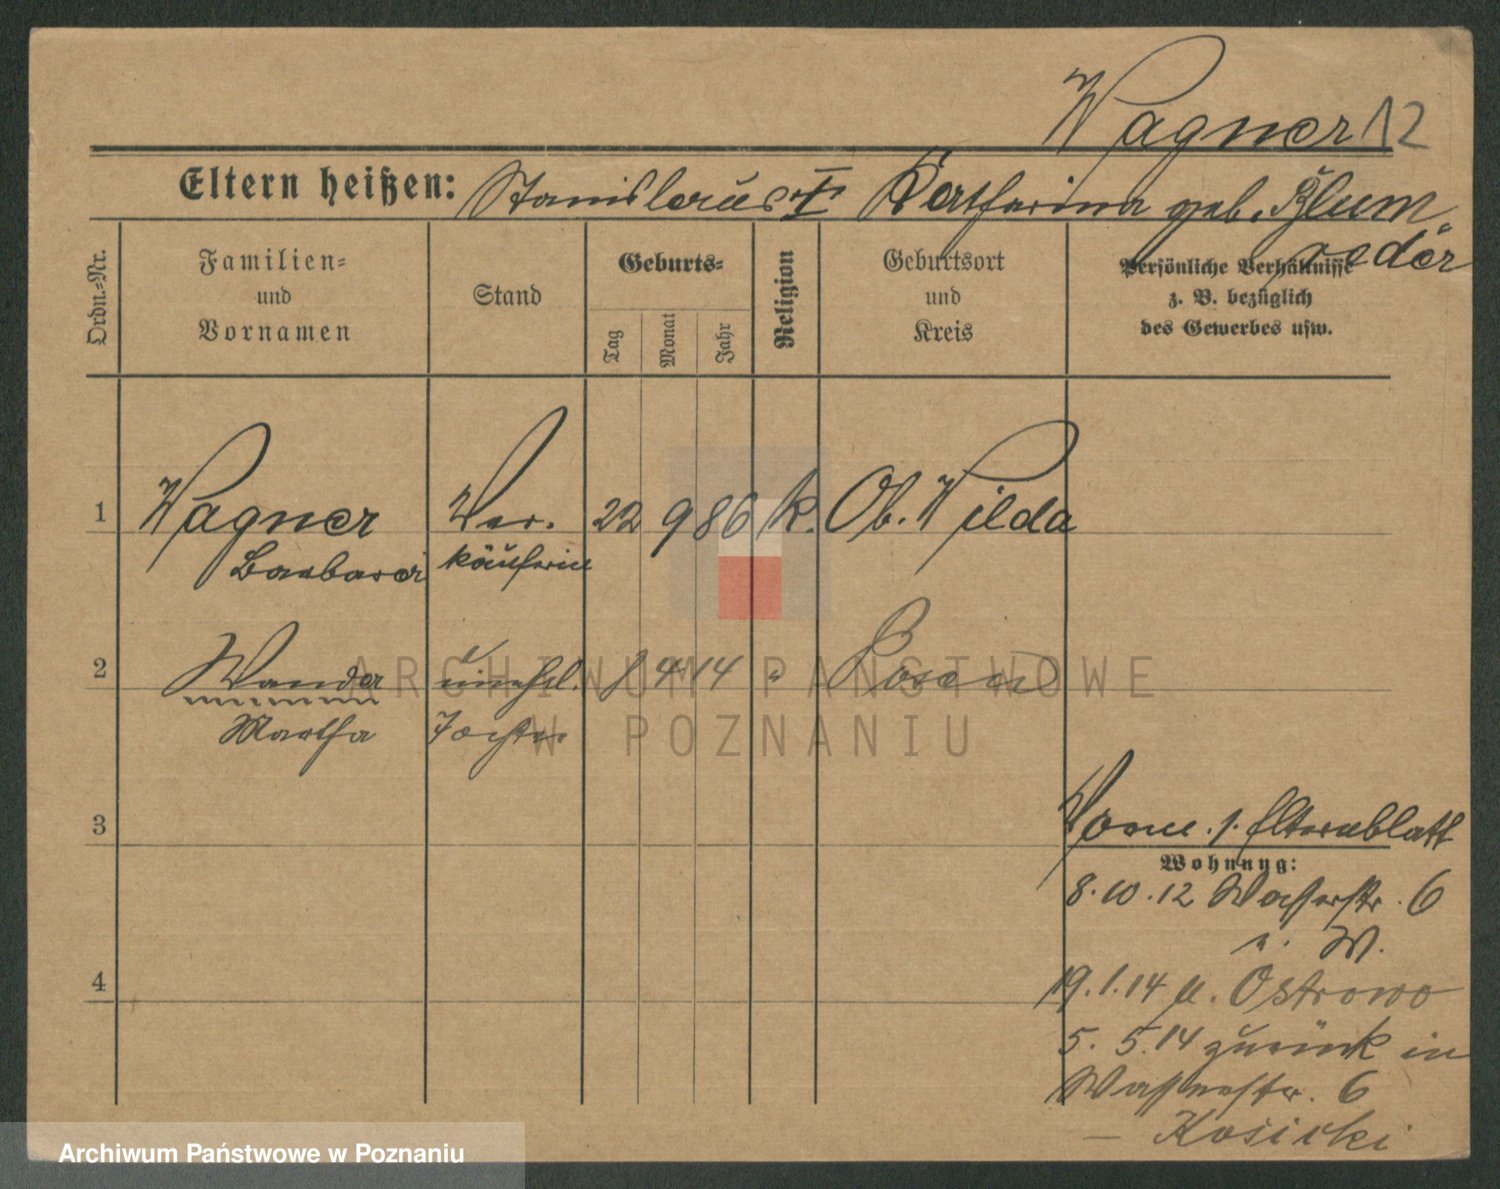 Wagner 12
Eltern heißen: Stanislaus † Katharina geb. Blum
Ordn.-Nr.
Familien-
und
Vornamen
Stand
Geburts-
Tag
Monat
Jahr
Religion
Geburtsort
und
Kreis
Persönliche Verhältnisse
z. B. bezüglich
des Gewerbes usw.
1 Wagner Ver- 22 9 86 k. Ob. Wilda
Barbara käuferin
2 Wander unehel. 8 4 14 " Posen
Martha Tochter
3
4
Vorm. s. Elternblatt
Wohnung:
8.10.12 Wasserstr. 6
W.
19.1.14 n. Ostrowo
5. 5.14 zurück in
Wasserstr. 6
— Kosicki
ARCHIWUM PAŃSTWOWE
W POZNANIU
Archiwum Państwowe w Poznaniu